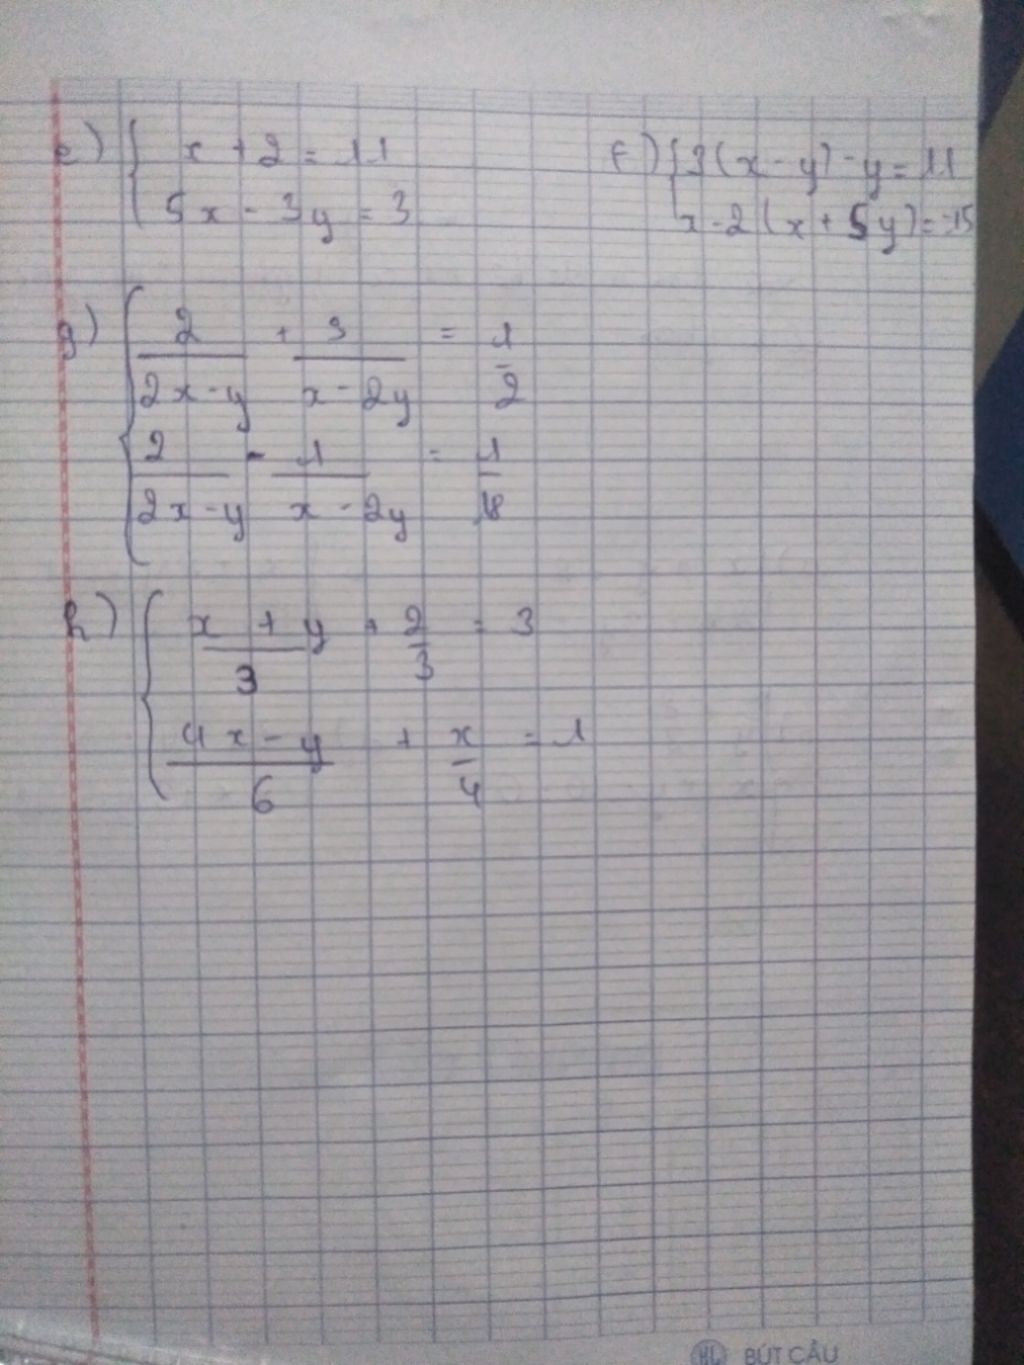 e) { x + 2 = 11
5x - 3y = 3
f) { 3(x - y) - y = 11
x - 2(x + 5y) = -15
g) { 2/(2x - y) + 3/(x - 2y) = 1/2
2/(2x - y) - 1/(x - 2y) = 1/18
h) { (x + y)/3 + 2/3 = 3
(4x - y)/6 + x/4 = 1
HL BÚT CÂU